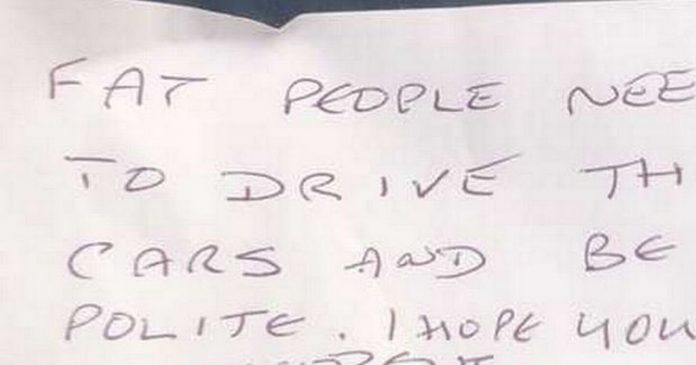 FAT PEOPLE NEE
TO DRIVE TH
CARS AND BE
POLITE. I HOPE YOU